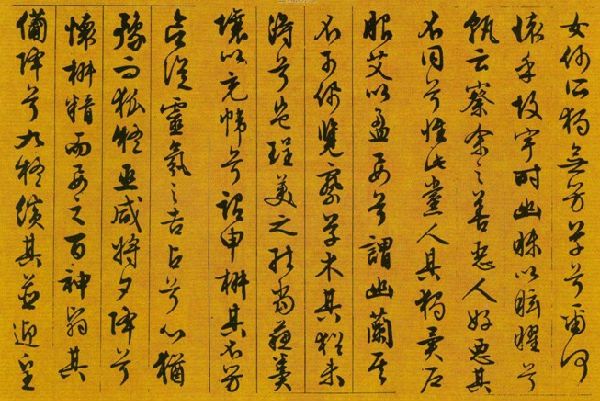 女何所獨無芳草兮爾何
懷乎故宇時幽昧以眩曜兮
孰云察余之善惡人好惡其
不同兮惟此黨人其獨異戶
服艾以盈要兮謂幽蘭其
不可佩覽察草木其猶未
得兮豈珵美之能當蘇糞
壤以充幃兮謂申椒其不芳
欲從靈氛之吉占兮心猶
豫而狐疑巫咸將夕降兮
懷椒糈而要之百神翳其
備降兮九疑繽其並迎皇